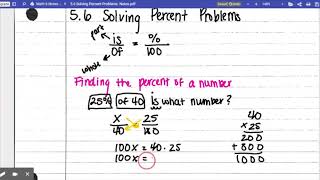 5.6 Solving Percent Problems. Notes.pdf
5.6 Solving Percent Problems
part
is = %
of 100
whole
Finding the percent of a number
25% of 40 is what number?
x 25
40 100
40
x 25
200
+ 800
1000
100x = 40 · 25
100x =